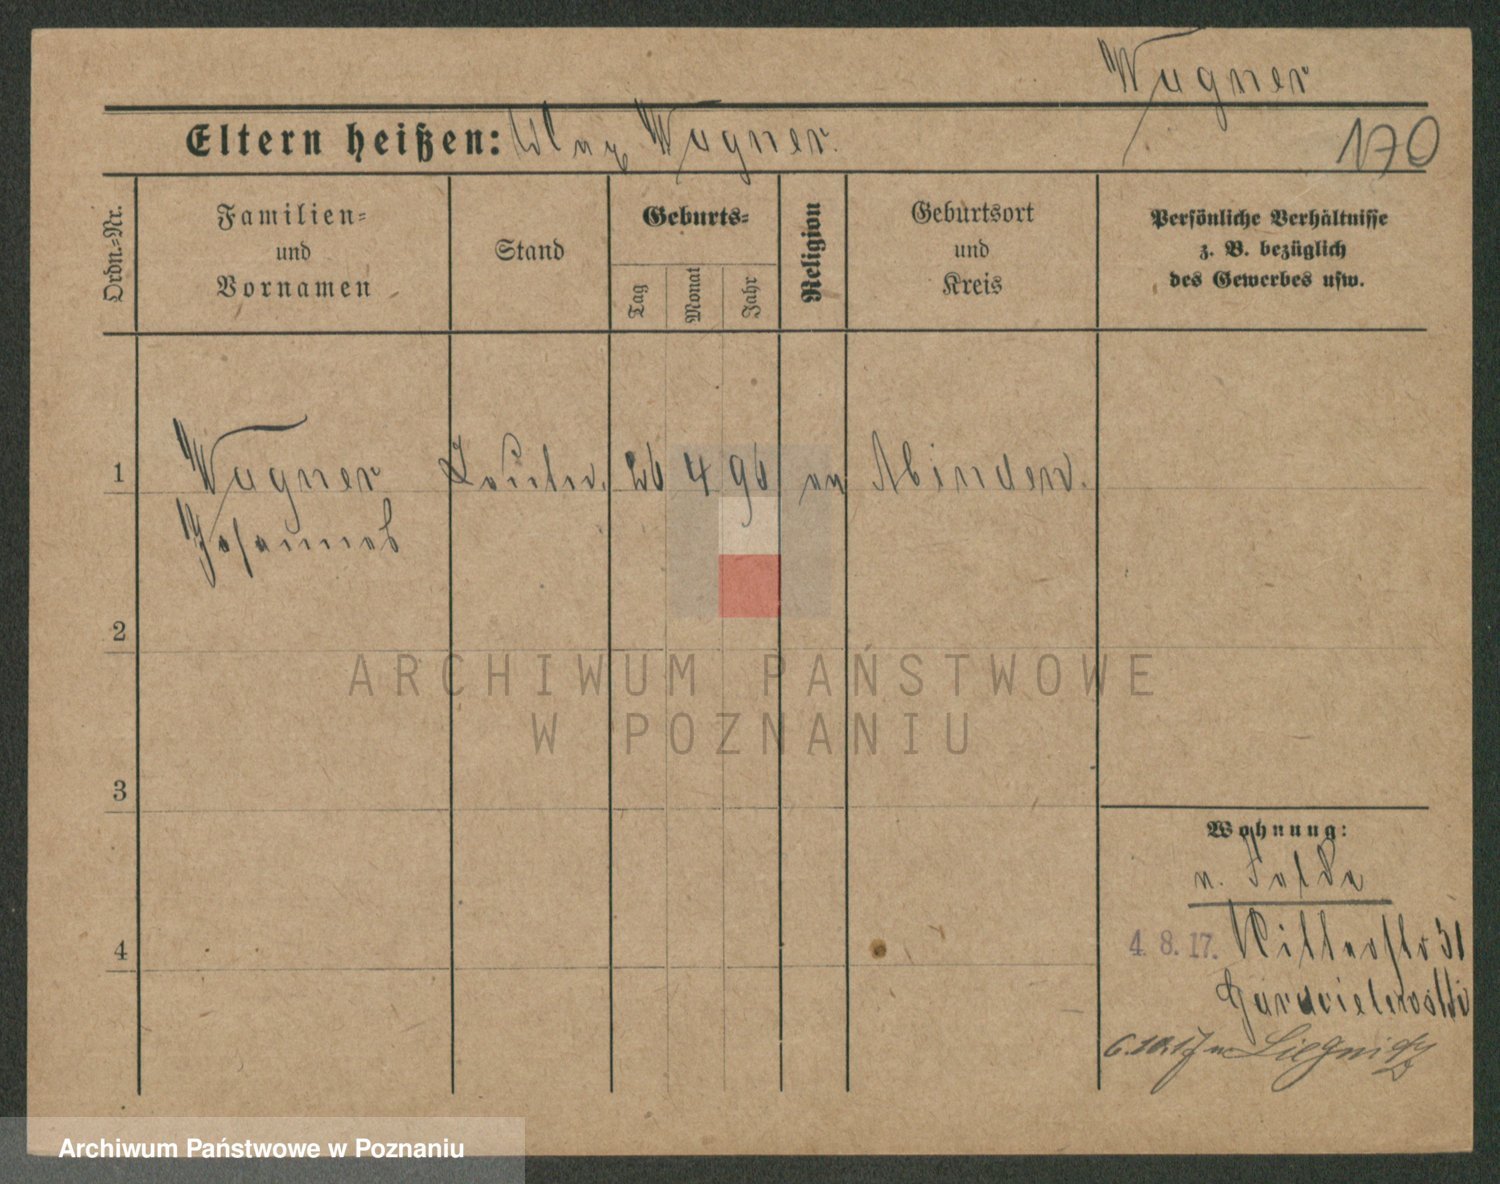 Wagner
Eltern heißen: Wagner.
170
Ordn.-Nr.
Familien-
und
Vornamen
Stand
Geburts-
Tag
Monat
Jahr
Religion
Geburtsort
und
Kreis
Persönliche Verhältnisse
z. B. bezüglich
des Gewerbes usw.
1
Wagner
Johannes
26
4
96
Minden.
2
3
4
Wohnung:
4. 8. 17. Ritterstr 31
6.10.17 n Liegnitz
ARCHIWUM PAŃSTWOWE
W POZNANIU
Archiwum Państwowe w Poznaniu